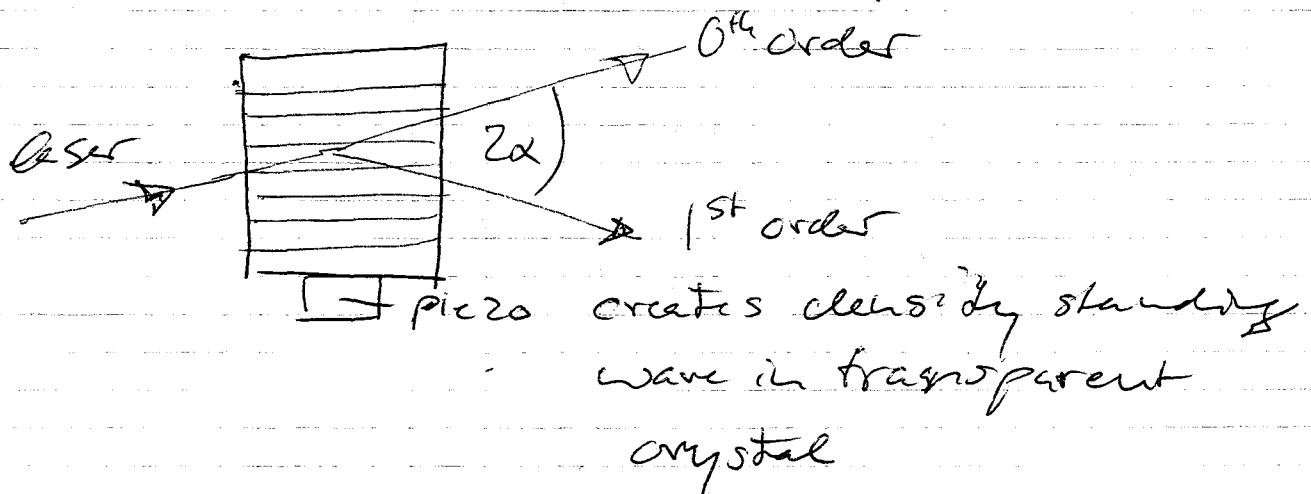 0th order
laser
2α
1st order
piezo creates density standing
wave in transparent
crystal